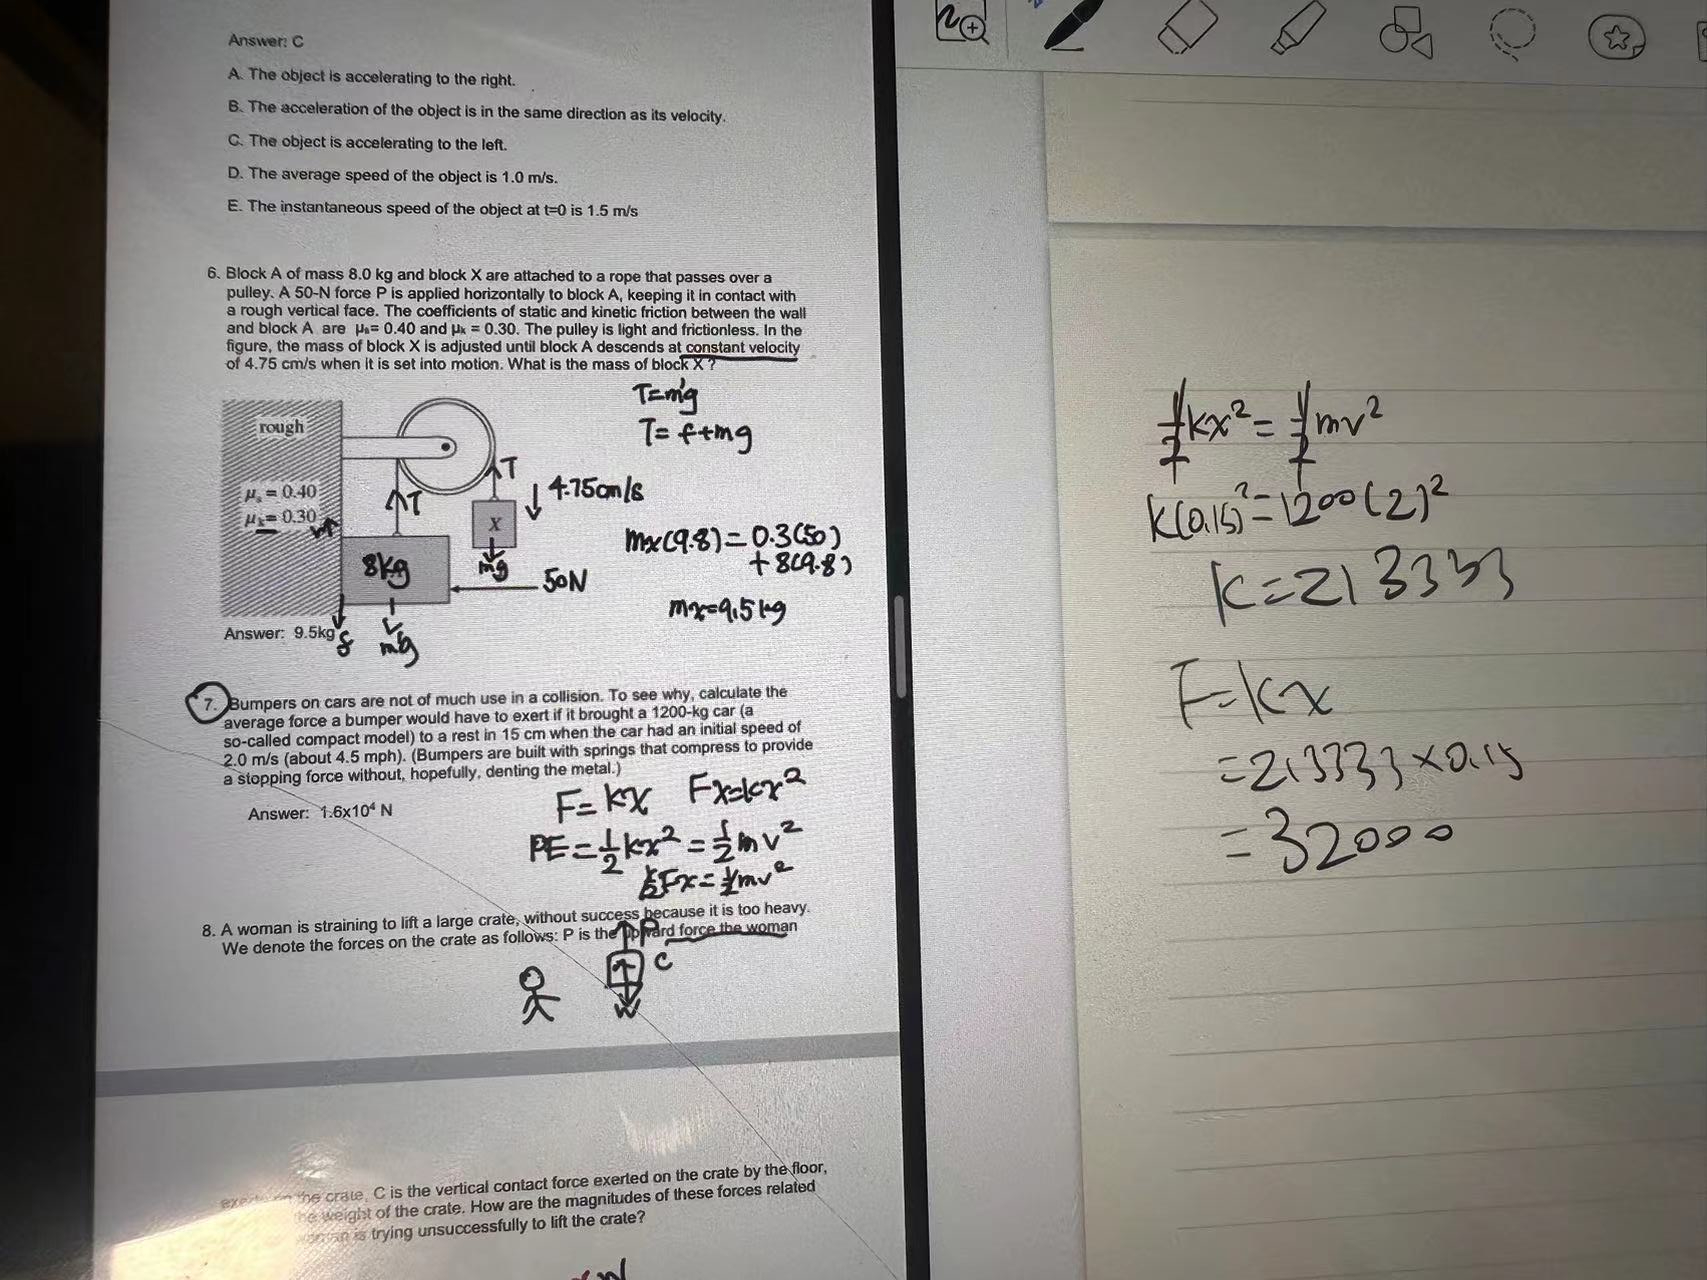 Answer: C
A. The object is accelerating to the right.
B. The acceleration of the object is in the same direction as its velocity.
C. The object is accelerating to the left.
D. The average speed of the object is 1.0 m/s.
E. The instantaneous speed of the object at t=0 is 1.5 m/s
6. Block A of mass 8.0 kg and block X are attached to a rope that passes over a
pulley. A 50-N force P is applied horizontally to block A, keeping it in contact with
a rough vertical face. The coefficients of static and kinetic friction between the wall
and block A are μs= 0.40 and μk = 0.30. The pulley is light and frictionless. In the
figure, the mass of block X is adjusted until block A descends at constant velocity
of 4.75 cm/s when it is set into motion. What is the mass of block X ?
T=mg
T= f+mg
rough
μs = 0.40
μk = 0.30
T
T
4.75cm/s
X
mg
8kg
50N
mg
f
mx(9.8)=0.3(50)
+8(9.8)
mx=9.5kg
Answer: 9.5kg
7. Bumpers on cars are not of much use in a collision. To see why, calculate the
average force a bumper would have to exert if it brought a 1200-kg car (a
so-called compact model) to a rest in 15 cm when the car had an initial speed of
2.0 m/s (about 4.5 mph). (Bumpers are built with springs that compress to provide
a stopping force without, hopefully, denting the metal.)
Answer: 1.6x10⁴ N
F= kx Fx=kx²
PE=½kx²=½mv²
½Fx=½mv²
8. A woman is straining to lift a large crate, without success because it is too heavy.
We denote the forces on the crate as follows: P is the upward force the woman
P
C
W
the crate, C is the vertical contact force exerted on the crate by the floor,
weight of the crate. How are the magnitudes of these forces related
trying unsuccessfully to lift the crate?
W
½kx²=½mv²
k(0.15)²=1200(2)²
k=213333
F=kx
=213333×0.15
=32000